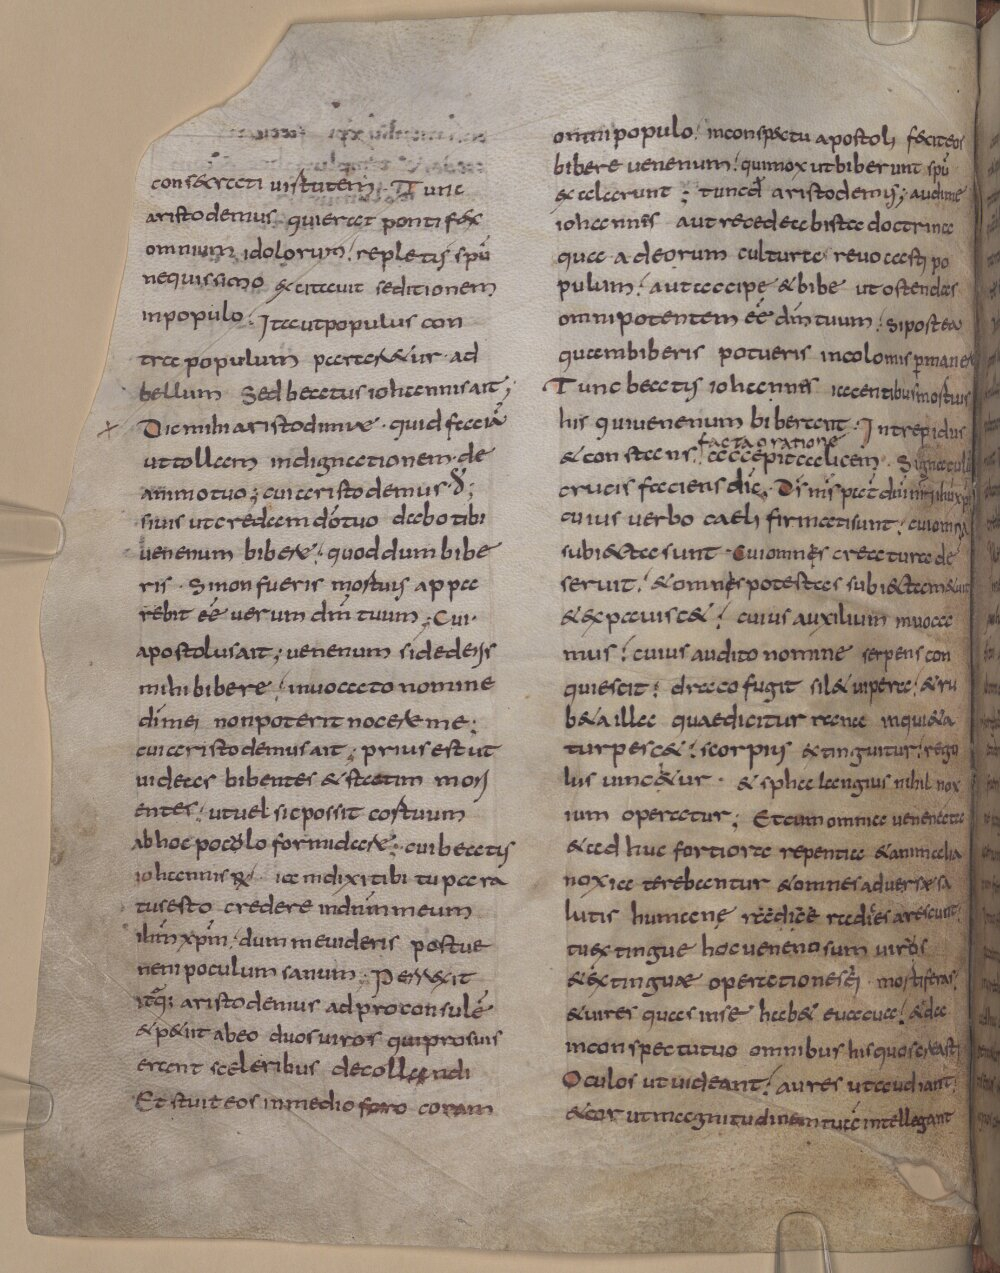 consecrati uirtutem. Tunc
aristodemus qui erat pontifex
omnium idolorum repletus spū
nequissimo excitauit seditionem
in populo. Ita ut populus con
tra populum pararetur ad
bellum Sed beatus iohannis ait;
Dic mihi aristodime. quid faciā
ut tollam indignationem de
animo tuo; cui aristodemus. d̄;
si uis ut credam dō tuo dabo tibi
uenenum bibere. quod dum bibe
ris. Si non fueris mortuus appa
rebit eē uerum dm̄ tuum; Cui
apostolus ait; uenenum si dederis
mihi bibere inuocato nomine
di mei non poterit nocere me;
cui aristodemus ait; prius est ut
uideas bibentes & statim mori
entes. ut uel sic possit cor tuum
ab hoc poculo formidare; cui beatus
iohannis iam dixi tibi tu para
tus esto credere in dnm meum
ihm xpm. dum me uideris post ue
neni poculum sanum. Perrexit
itaq; aristodemus ad proconsulē
& petiit ab eo duos uiros qui pro suis
erant sceleribus decollandi
Et statuit eos in medio foro coram
omni populo. in conspectu apostoli fecit eos
bibere uenenum. qui mox ut biberunt spū
exalarunt; tunc d̄ aristodemus; audi me
iohannis aut recede ab ista doctrina
qua a deorum cultura reuocasti po
pulum. aut accipe & bibe ut ostendas
omnipotentem eē dm̄ tuum. Si postea
quam biberis potueris incolomis permanere
Tunc beatus iohannis iacentibus mortuis
his qui uenenum biberant. Intrepidus
facta oratione
& constans accepit calicem. Signaculū
crucis faciens dic. Ds̄ mī pat dn̄i mī ihu xp̄i
cuius uerbo caeli firmati sunt. cui omnia
subiecta sunt. Cui omnis creatura de
seruit. & omnis potestas subiecta
& expauiscet. cuius auxilium inuoca
mus. cuius audito nomine serpens con
quiescit. draco fugit silet uipera. & ru
beta illa quae dicitur rana inquieta
turpescet. scorpius extinguitur. regu
lus uincetur. & sphalangius nihil nox
ium operatur; Et cum omnia uenenata
& adhuc fortiora repentia & animalia
noxia terebrantur & omnes aduerse sa
lutis humane radices arescunt.
tu extingue hoc uenenosum uirus
& extingue operationes ei. mortiferas
& uires quas in se habet euacua. & da
in conspectu tuo omnibus his quos creasti
Oculos ut uideant. aures ut audiant.
& cor ut magnitudinem tuā intellegant